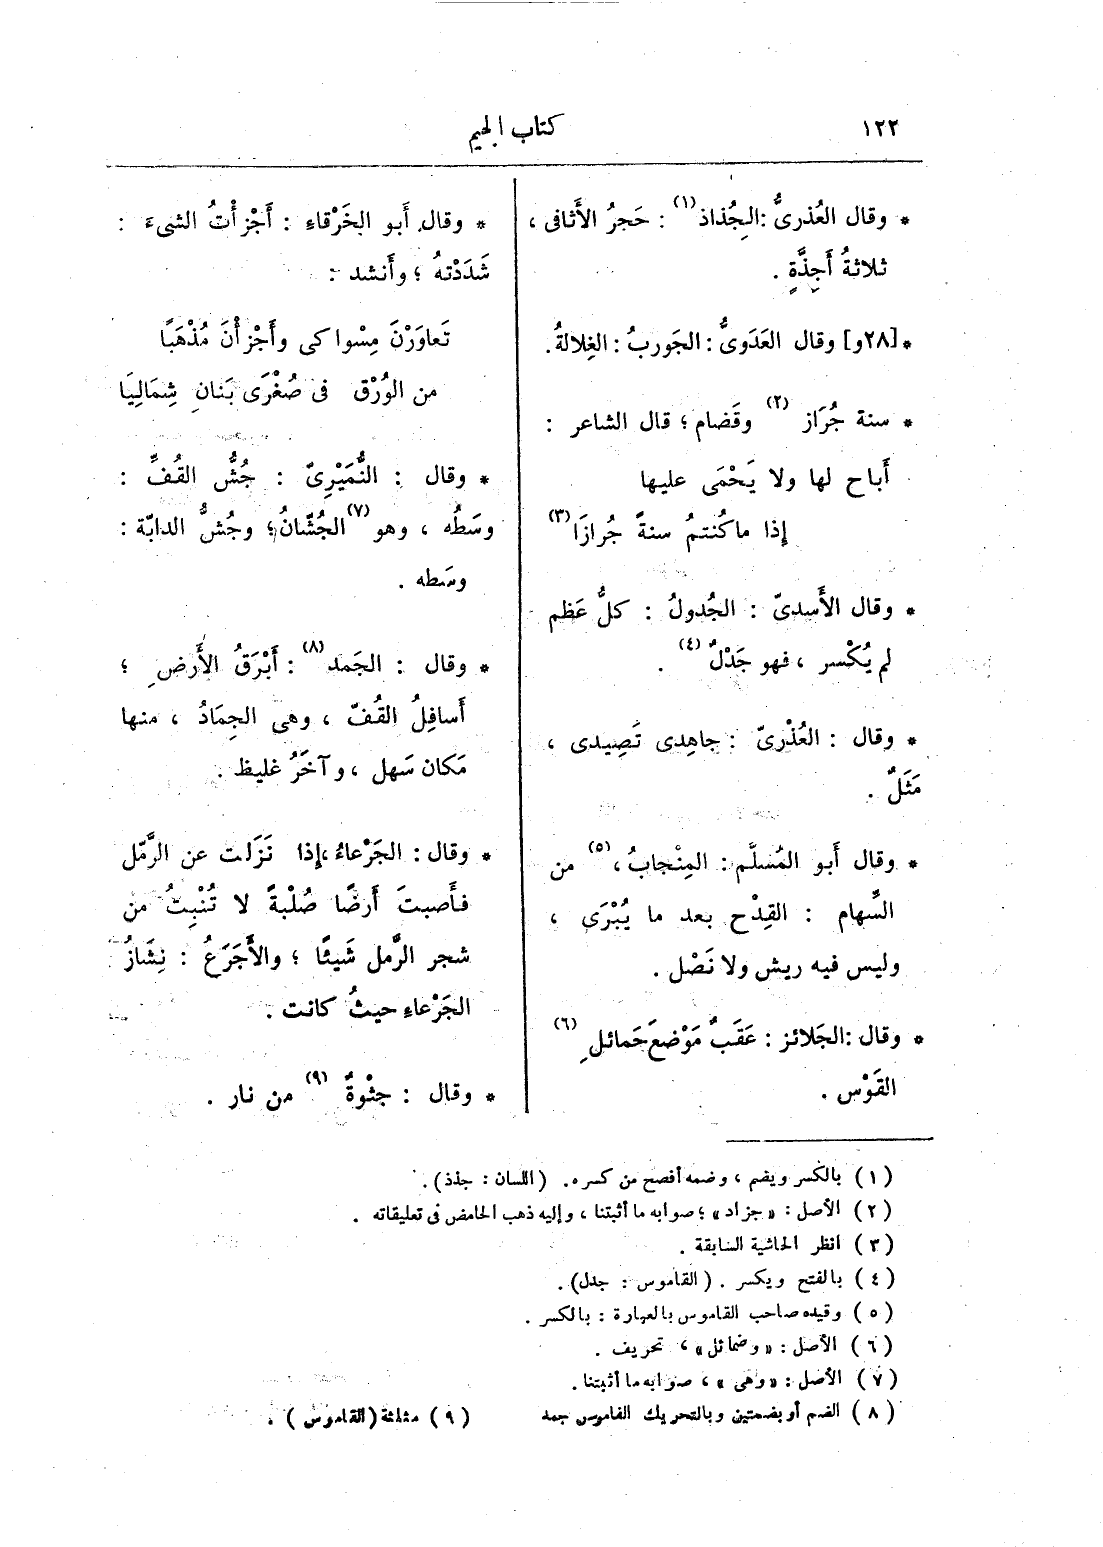 ١٢٢
كتاب الجيم
* وقال العُذرىُّ : الجِذاذ (١) : حَجرُ الأَثافى ،
ثلاثةُ أَجِذَّةٍ .
* [٢٨و] وقال العَدَوىُّ : الجَوربُ : الغِلالةُ .
* سنة جُرَاز (٢) وقَضام ؛ قال الشاعر :
أَباح لها ولا يَحْمَى عليها
إِذا ما كُنتمُ سنةً جُرازَا (٣)
* وقال الأَسدىّ : الجُدولُ : كلُّ عَظم
لم يُكْسر ، فهو جَدْلٌ (٤) .
* وقال : العُذْرىّ : جاهِدى تَصِيدى ،
مَثَلٌ .
* وقال أَبو المُسلَّم : المِنْجابُ (٥) ، من
السِّهام : القِدْح بعد ما يُبْرَى ،
وليس فيه ريش ولا نَصْل .
* وقال : الجَلائز : عَقَبٌ مَوْضعَ حَمائلِ (٦)
القَوْس .
* وقال أَبو الخَرْقاءِ : أَجْزأْتُ الشىءَ :
شَدَدْتهُ ؛ وأَنشد :
تَعاوَرْنَ مِسْواكى وأَجْزأْنَ مُذْهَبًا
من الوُرْق فى صُغْرَى بَنانِ شِمالِيَا
* وقال : النُّمَيْرِىّ : جُشُّ القُفِّ :
وسَطُه ، وهو (٧) الجُشّانُ ؛ وجُشُّ الدابّة :
وسَطه .
* وقال : الجَمد (٨) : أَبْرَقُ الأَرضِ ؛
أَسافِلُ القُفّ ، وهى الجِمَادُ ، منها
مَكان سَهل ، وآخَرُ غليظ .
* وقال : الجَرْعاءُ ، إِذا نَزَلت عن الرَّمْل
فأَصبتَ أَرضًا صُلْبةً لا تُنْبِتُ من
شجر الرَّمل شَيئًا ؛ والأَجَرَعُ : نِشَازُ
الجَرْعاءِ حيثُ كانت .
* وقال : جثْوةٌ (٩) من نار .
(١) بالكسر ويضم ، وضمه أفصح من كسره . (اللسان : جذذ) .
(٢) الأصل : «جزاد» ؛ صوابه ما أثبتنا ، وإليه ذهب الحامض فى تعليقاته .
(٣) انظر الحاشية السابقة .
(٤) بالفتح ويكسر . (القاموس : جدل) .
(٥) وقيده صاحب القاموس بالعبارة : بالكسر .
(٦) الأصل : «وضمائل» ، تحريف .
(٧) الأصل : «وهى» ، صوابه ما أثبتنا .
(٨) الضم أو بضمتين وبالتحريك القاموس جمد (٩) مثلثة (القاموس) .